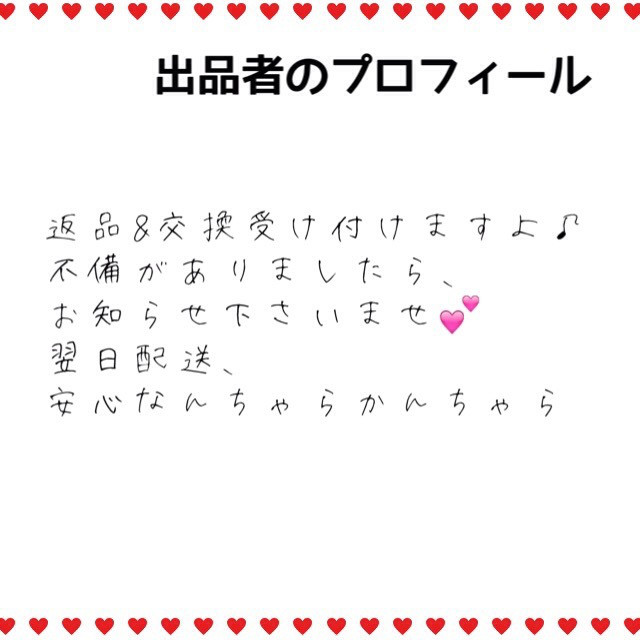 出品者のプロフィール
返品&交換受け付けますよ♪
不備がありましたら、
お知らせ下さいませ💕
翌日配送、
安心なんちゃらかんちゃら